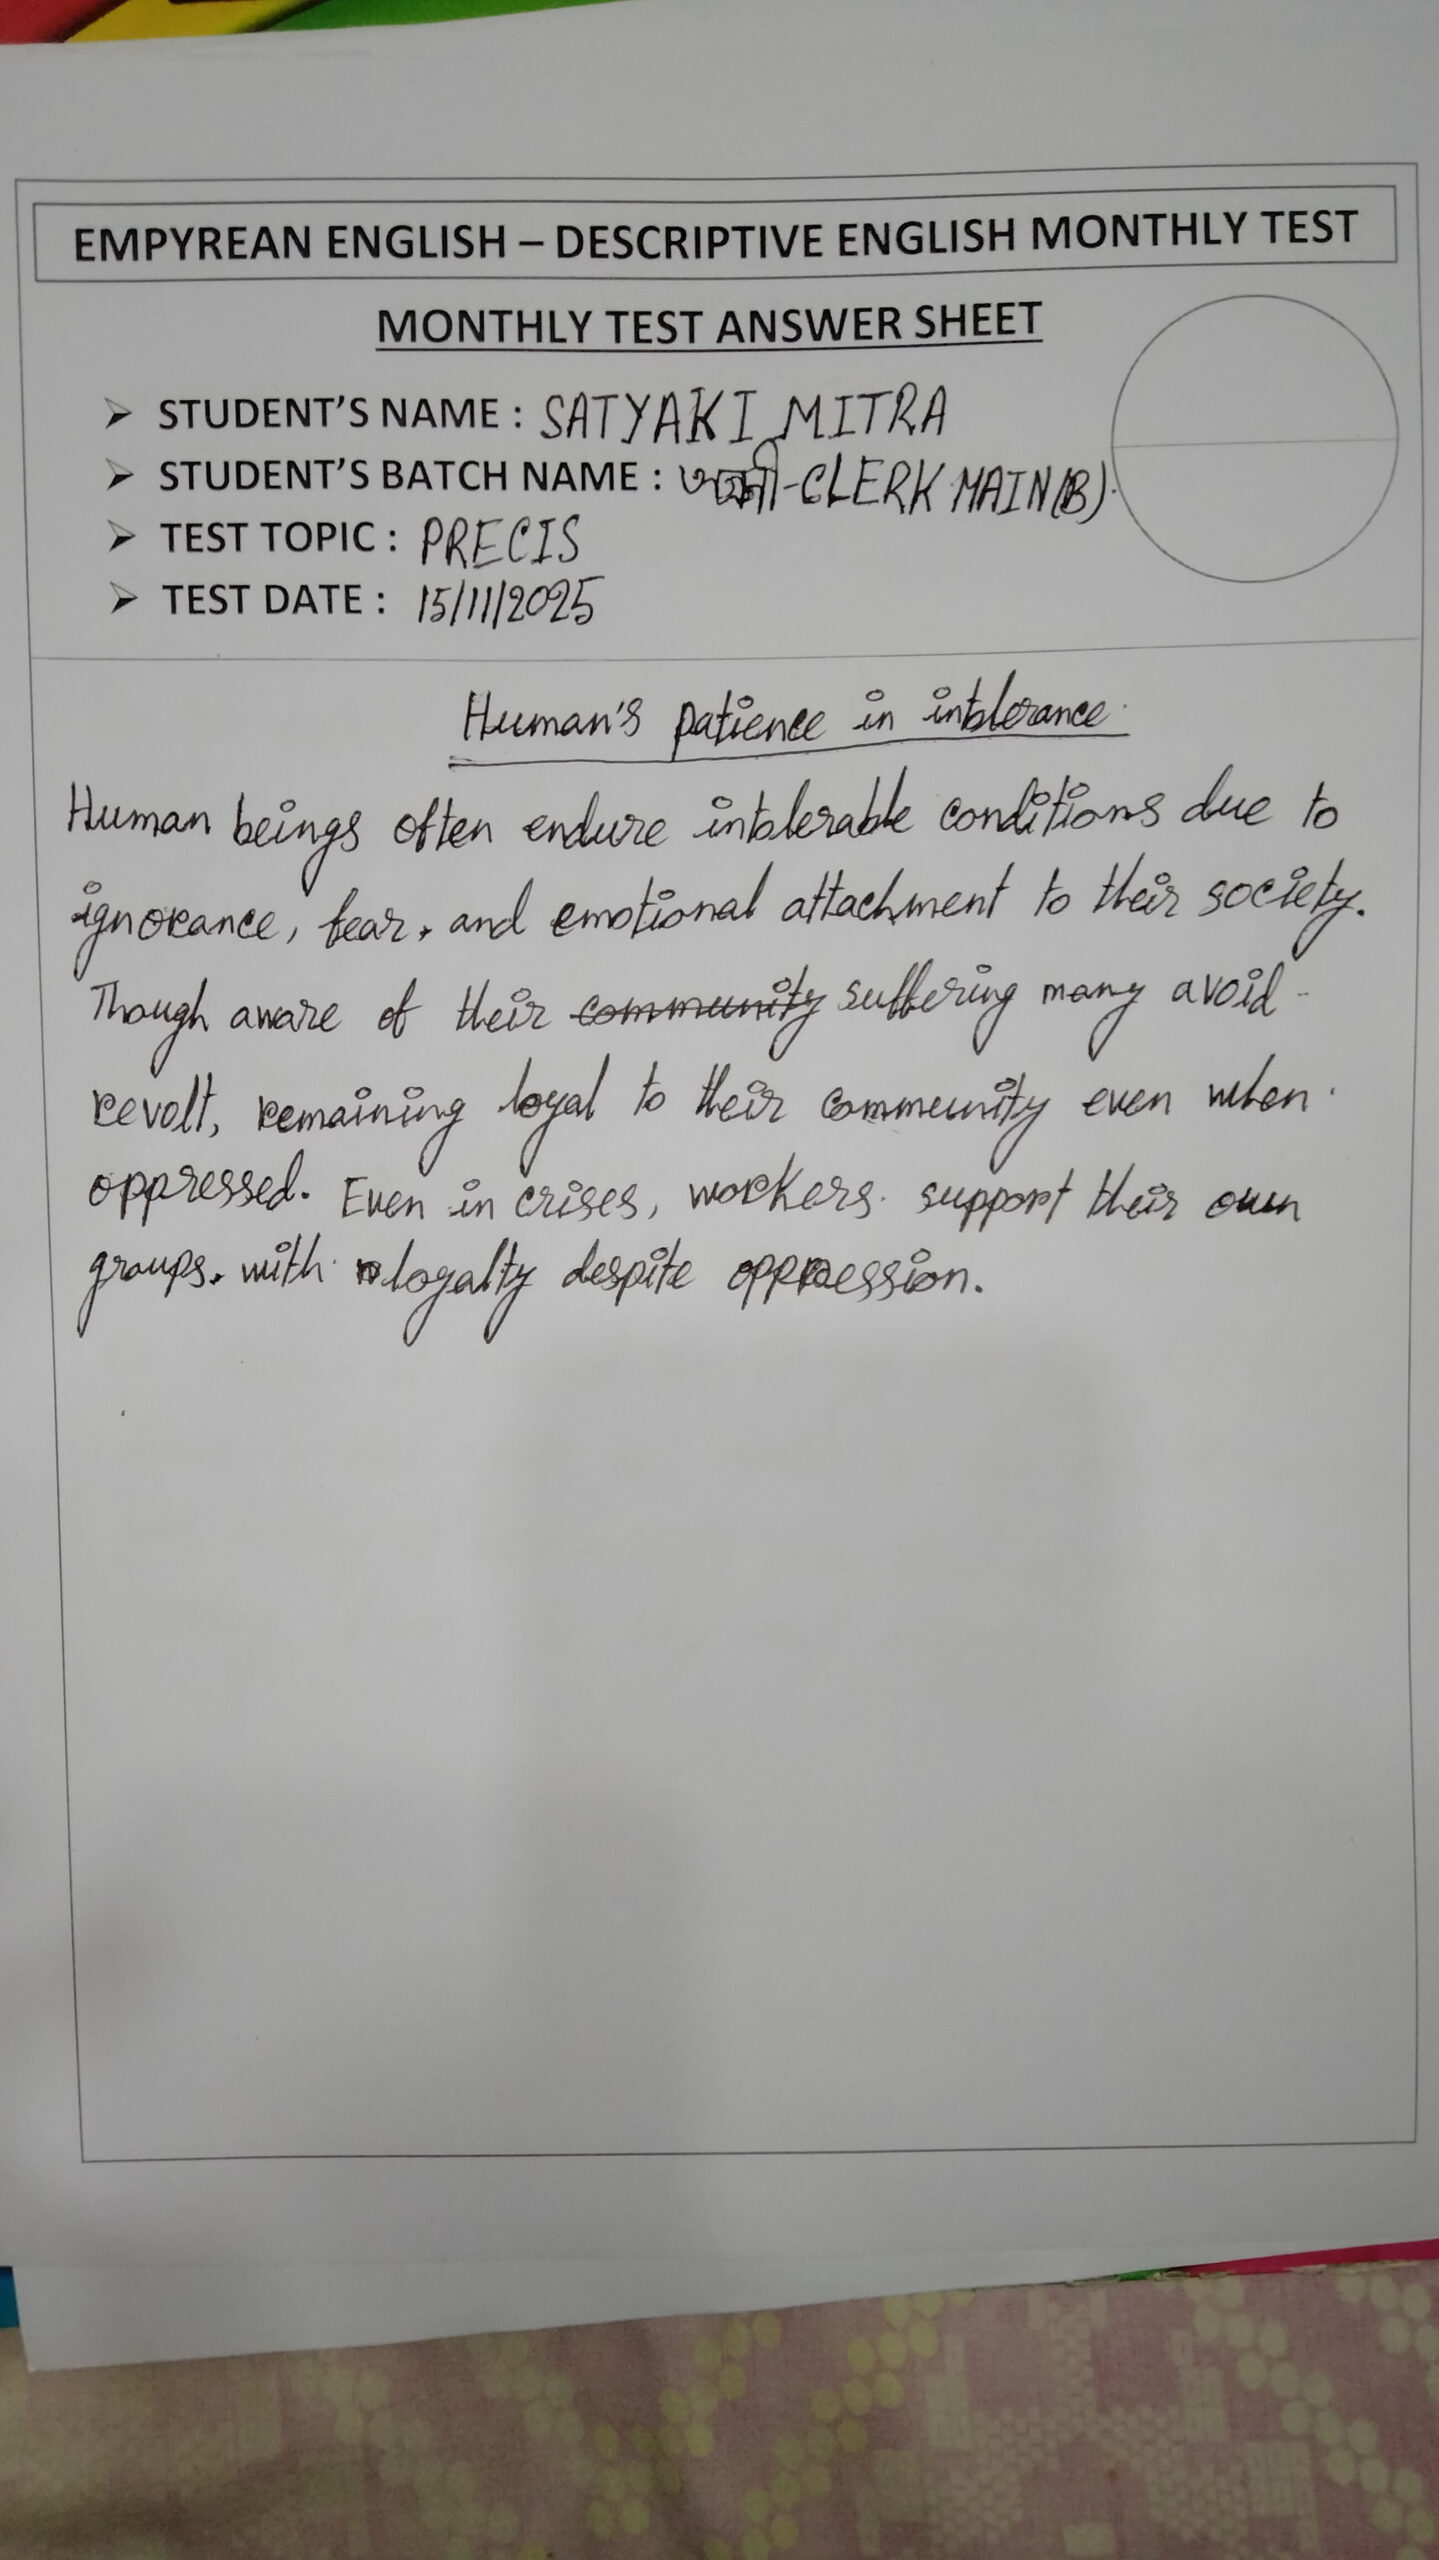 EMPYREAN ENGLISH – DESCRIPTIVE ENGLISH MONTHLY TEST
MONTHLY TEST ANSWER SHEET
➢ STUDENT'S NAME : SATYAKI MITRA
➢ STUDENT'S BATCH NAME : -CLERK MAIN(B)
➢ TEST TOPIC : PRECIS
➢ TEST DATE : 15/11/2025
Human's patience in intolerance.
Human beings often endure intolerable conditions due to
ignorance, fear, and emotional attachment to their society.
Though aware of their community suffering many avoid
revolt, remaining loyal to their community even when
oppressed. Even in crises, workers support their own
groups. with loyalty despite oppression.